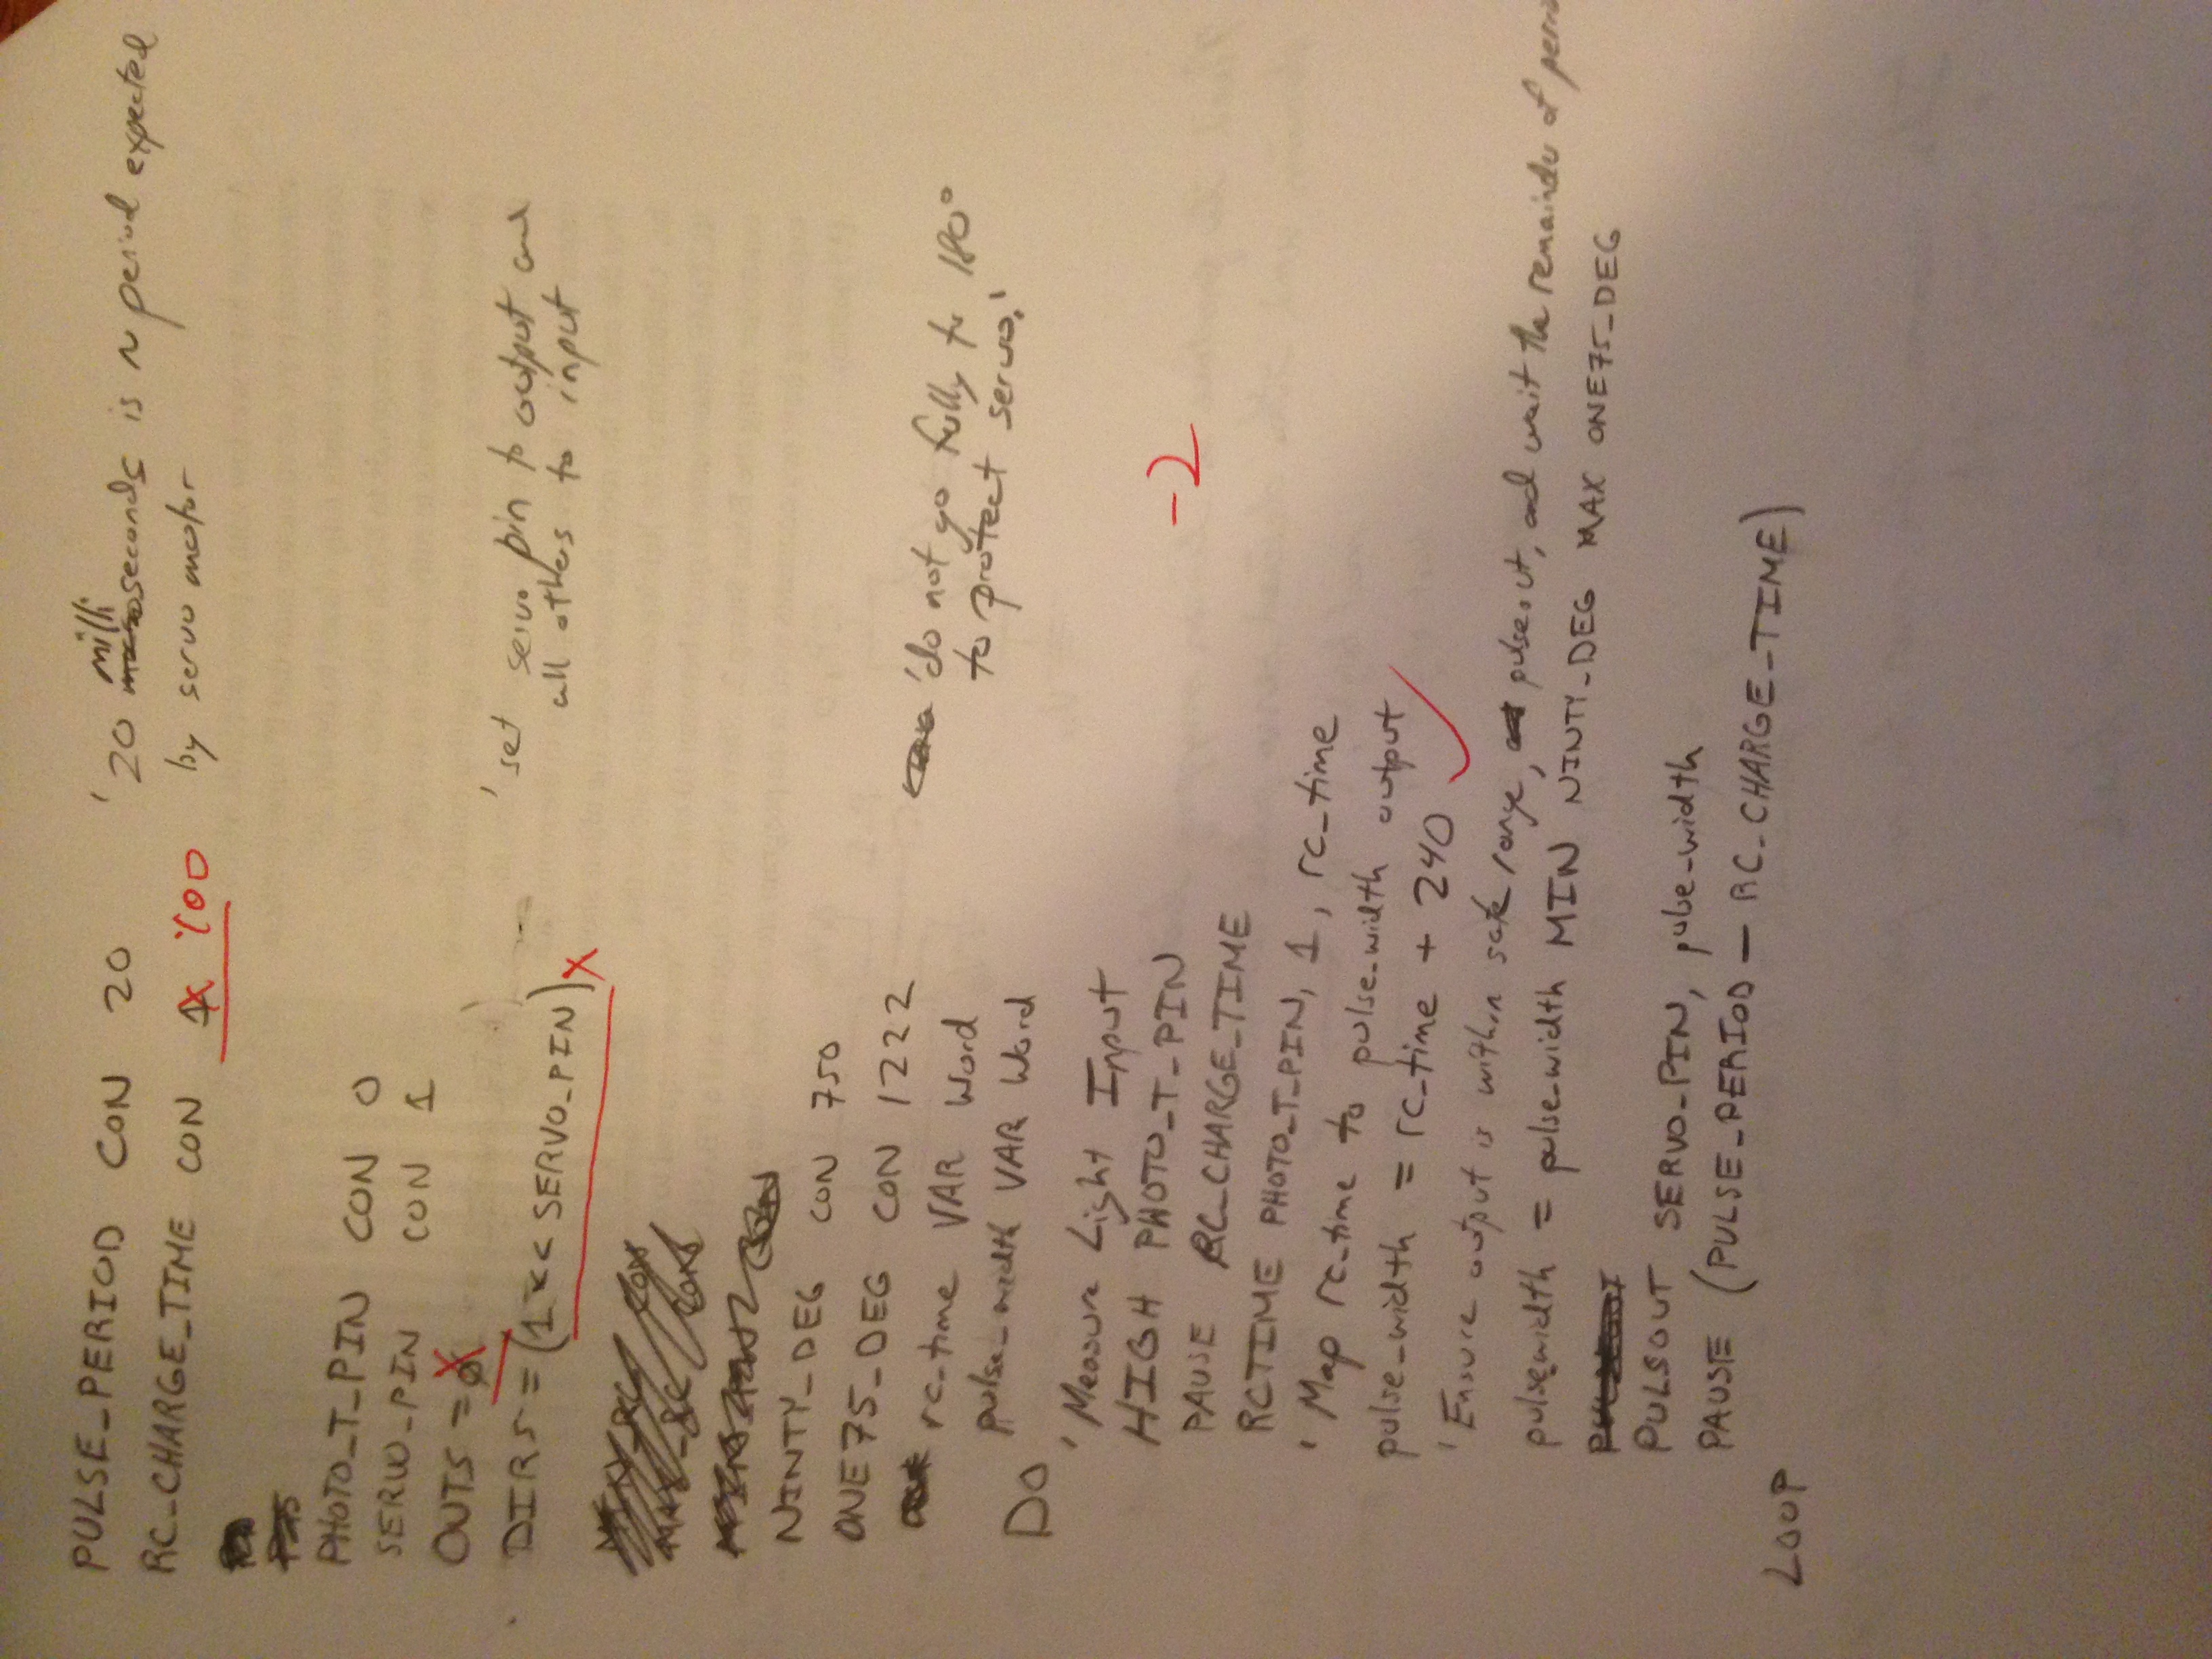 PULSE_PERIOD CON 20 '20 milliseconds is ~ period expected
RC_CHARGE_TIME CON 1 100 by servo motor
PHOTO_T_PIN CON 0
SERVO_PIN CON 1
OUTS = 0
DIRS = (1 << SERVO_PIN) 'set servo pin to output and
all others to input
NINTY_DEG CON 750
ONE75_DEG CON 1222
rc_time VAR Word 'do not go fully to 180°
pulse_width VAR Word to protect servo.'
DO
'Measure Light Input
HIGH PHOTO_T_PIN
-2
PAUSE RC_CHARGE_TIME
RCTIME PHOTO_T_PIN, 1, rc_time
'Map rc_time to pulse_width output
pulse_width = rc_time + 240
'Ensure output is within safe range, pulseout, and wait the remainder of
pulse_width = pulse_width MIN NINTY_DEG MAX ONE75_DEG
PULSOUT SERVO_PIN, pulse_width
PAUSE (PULSE_PERIOD - RC_CHARGE_TIME)
LOOP